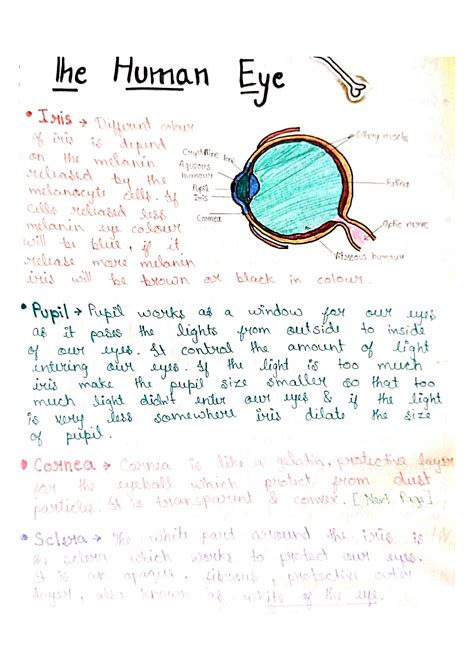 The Human Eye
• Iris → Different colour
of iris is depend
on the melanin
released by the
melanocyte cells. If
cells released less
melanin eye colour
will be blue, if it
release more melanin
iris will be brown or black in colour.
Crystlline lens
Aqueous
humour
Pupil
Iris
Cornea
Ciliary muscle
Retina
Optic nerve
Vitreous humour
• Pupil → Pupil works as a window for our eyes
as it pass the lights from outside to inside
of our eyes. It control the amount of light
entering our eyes. If the light is too much
iris make the pupil size smaller so that too
much light didn't enter our eyes & if the light
is very less somewhere iris dilate the size
of pupil.
• Cornea → Cornea is like a gelatin, protective layer
for the eyeball which protect from dust
particles. It is transparent & convex. [Next Page]
• Sclera → The white part around the iris is
the sclera which works to protect our eyes.
It is an opaque, fibrous, protective outer
layer, also known as white of the eye.